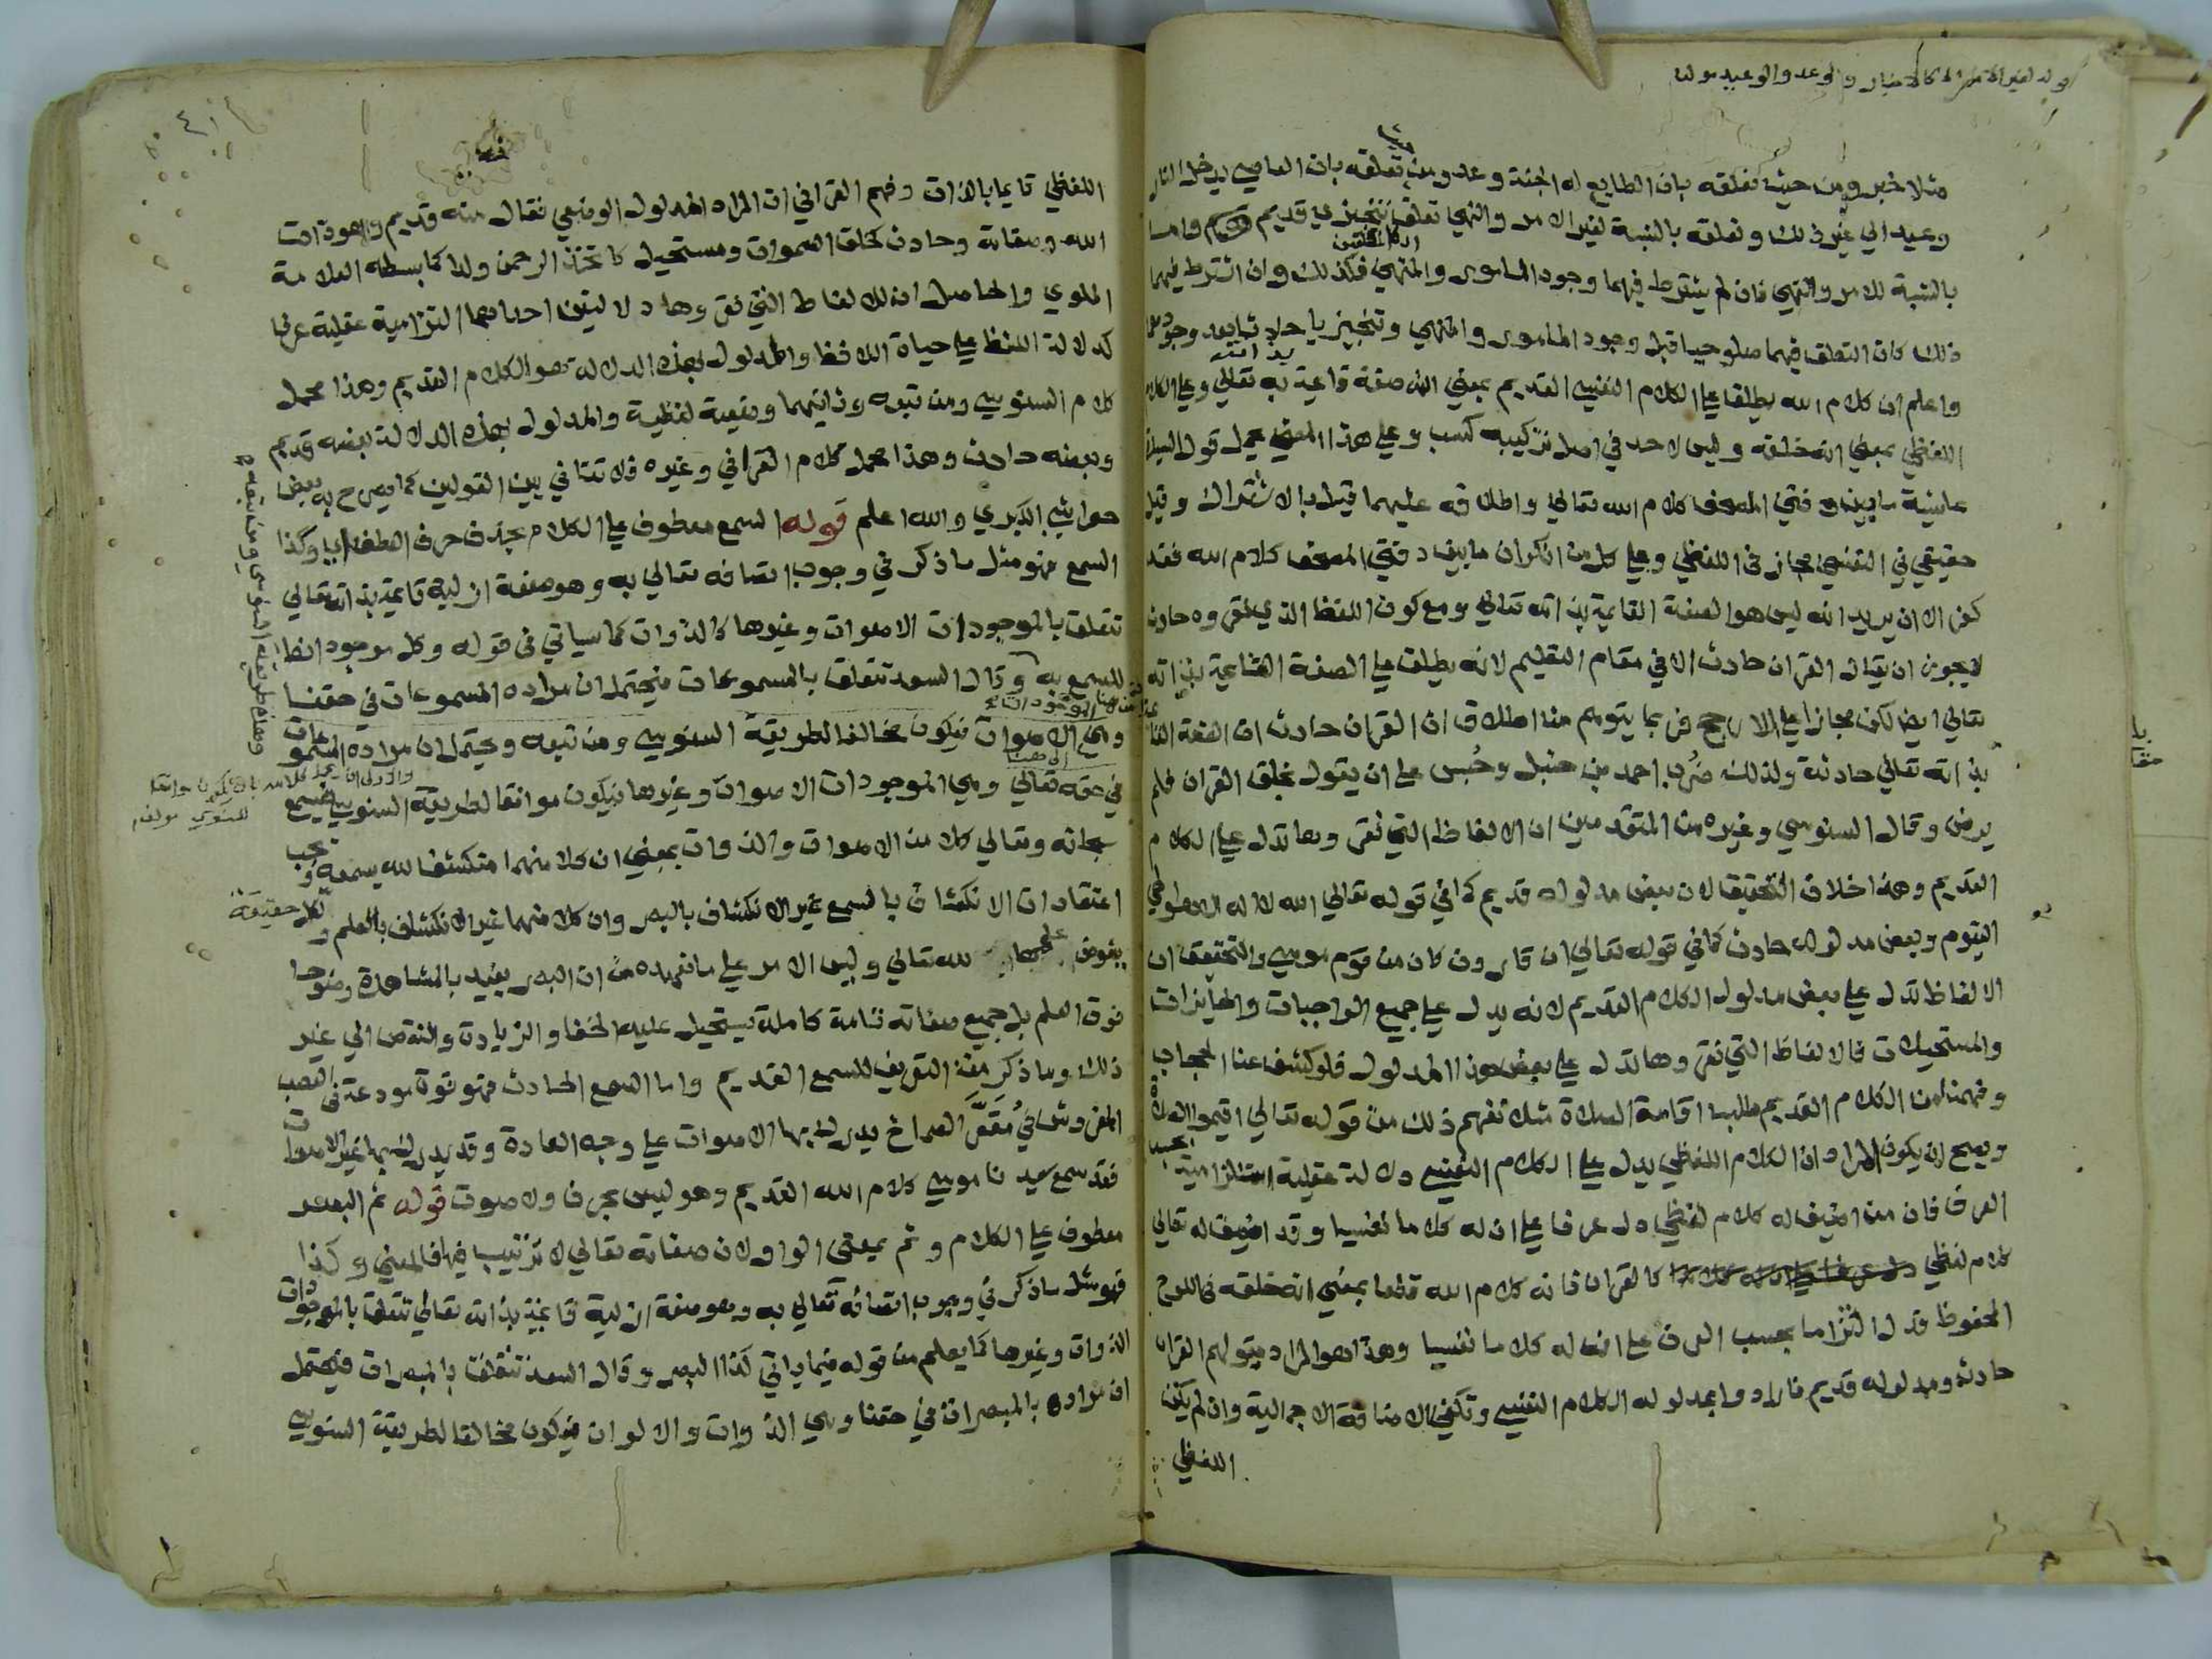 قوله لغير الامر الخ كالاخبار والوعد والوعيد مولف
مثلا خبر ومن حيث تعلقه بان الطايع له الجنة وعد ومن حيث تعلقه بان العاصي يدخل النار
وعيد الي غير ذلك وتعلقه بالنسبة لغير الامر والنهي تعلق تنجيزي قديم واما
بالنسبة للامر والنهي فان لم يشترط فيهما وجود المامور والمنهي فكذلك وان اشترط فيهما
ذلك كان التعلق فيهما صلوحيا قبل وجود المامور والمنهي وتنجيزيا حادثا بعد وجودهما
واعلم ان كلام الله يطلق علي الكلام النفسي القديم بمعني انه صفة قائمة به تعالي وعلي الكلام
اللفظي بمعني انه خلقه وليس لاحد في اصل تركيبه كسب وعلي هذا المعني يحمل قول السيدة
عايشة ما بين دفتي المصحف كلام الله تعالي واطلاقه عليهما قيل بالاشتراك وقيل
حقيقي في النفسي مجاز في اللفظي وعلي كل من انكر ان ما بين دفتي المصحف كلام الله فقد
كفر الا ان يريد انه ليس هو الصفة القايمة بذاته تعالي ومع كون اللفظ الذي نقروه حادث
لا يجوز ان يقال القران حادث الا في مقام التعليم لانه يطلق علي الصفة القائمة بذاته
تعالي ايضا لكن مجازا علي الارجح فربما يتوهم من اطلاق ان القران حادث ان الصفة القائمة
بذاته تعالي حادثة ولذلك ضُرب احمد بن حنبل وحُبس علي ان يقول بخلق القران فلم
يرض وقال السنوسي وغيره من المتقدمين ان الالفاظ التي نقروها تدل علي الكلام
القديم وهذا خلاف التحقيق لان بعض مدلوله قديم كما في قوله تعالي الله لا اله الا هو الحي
القيوم وبعض مدلوله حادث كما في قوله تعالي ان قارون كان من قوم موسي والتحقيق ان
الالفاظ تدل علي بعض مدلول الكلام القديم لانه يدل علي جميع الواجبات والجايزات
والمستحيلات فالالفاظ التي نقروها تدل علي بعض هذا المدلول فلو كشف عنا الحجاب
وفهمنا من الكلام القديم طلب اقامة الصلاة مثلا نفهم ذلك من قوله تعالي اقيموا الصلاة
ويصح ان يكون المراد ان الكلام اللفظي يدل علي الكلام النفسي دلالة عقلية التزامية بحسب
العرف فان من اضيف له كلام لفظي دل عرفا علي ان له كلاما نفسيا وقد اضيف له تعالي
كلام لفظي كالقران فانه كلام الله قطعا بمعني انه خلقه في اللوح
المحفوظ فدل التزاما بحسب العرف علي ان له كلاما نفسيا وهذا هو المراد بقولهم القران
حادث ومدلوله قديم فارادوا بمدلوله الكلام النفسي وتكفي الاضافة الاجمالية وان لم يكن
اللفظي
اللفظي قايما بالذات وفهم القرافي ان المراد المدلول الوضعي فقال منه قديم وهو ذات
الله وصفاته وحادث كخلق السموات ومستحيل كاتخذ الرحمن ولدا كما بسطه العلامة
الملوي والحاصل ان للالفاظ التي نقروها دلالتين احداهما التزامية عقلية عرفا
كدلالة اللفظ علي حياة اللافظ والمدلول بهذه الدلالة هو الكلام القديم وهذا محمل
كلام السنوسي ومن تبعه وثانيتهما وضعية لفظية والمدلول بهذه الدلالة بعضه قديم
وبعضه حادث وهذا محمل كلام القرافي وغيره فلا تنافي بين القولين كما يصرح به بعض
حواشي الكبري والله اعلم قوله السمع معطوف علي الكلام بحذف حرف العطف اي وكذا
السمع فهو مثل ما ذكر في وجوب اتصافه تعالي به وهو صفة ازلية قائمة بذاته تعالي
تتعلق بالموجودات الاصوات وغيرها كالذوات كما سياتي في قوله وكل موجود انط
للسمع به وقال السعد تتعلق بالمسموعات فيحتمل ان مراده المسموعات في حقنا
وهي الاصوات فيكون مخالفا لطريقة السنوسي ومن تبعه ويحتمل ان مراده المسموعات
في حقه تعالي وهي الموجودات الاصوات وغيرها فيكون موافقا لطريقة السنوسي فيسمع
سبحانه وتعالي كلا من الاصوات والذوات بمعني ان كلا منهما منكشف لله بسمعه ويجب
اعتقاد ان الانكشاف بالسمع غير الانكشاف بالبصر وان كلا منهما غير الانكشاف بالعلم ولكل حقيقة
يفوض علمها لله تعالي وليس الامر علي ما نعهده من ان البصر يفيد بالمشاهدة وضوحا
فوق العلم بل جميع صفاته تامة كاملة يستحيل عليه الخفا والزيادة والنقص الي غير
ذلك وما ذكر من التعريف للسمع القديم واما السمع الحادث فهو قوة مودعة في العصب
المفروش في مُقَعَّر الصماخ يدرك بها الاصوات علي وجه العادة وقد يدرك بها غير الاصوات
فقد سمع سيدنا موسي كلام الله القديم وهو ليس بحرف ولا صوت قوله ثم البصر
معطوف علي الكلام وثم بمعني الواو لان صفاته تعالي لا ترتيب فيها فالمعني وكذا
فهو مثل ما ذكر في وجوب اتصافه تعالي به وهو صفة ازلية قائمة بذاته تعالي تتعلق بالموجودات
الذوات وغيرها كما يعلم من قوله فيما ياتي كذا البصر وقال السعد تتعلق بالمبصرات فيحتمل
ان مراده بالمبصرات في حقنا وهي الذوات والالوان فيكون مخالفا لطريقة السنوسي